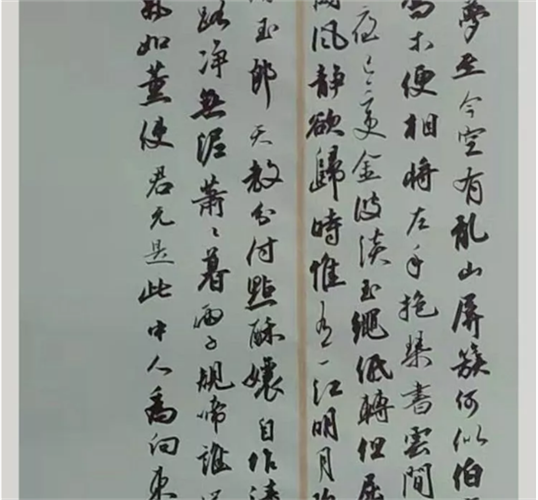 夢至今空有亂山屏簇何似伯
喬木便相將左手抱琴書雲間
夜已三更金波淡玉繩低轉但屈
闌風靜欲歸時惟有一江明月
玉郎天教分付點酥孃自作清
路淨無泥蕭〻暮雨子規啼誰道
氣如薰使君元是此中人為向東